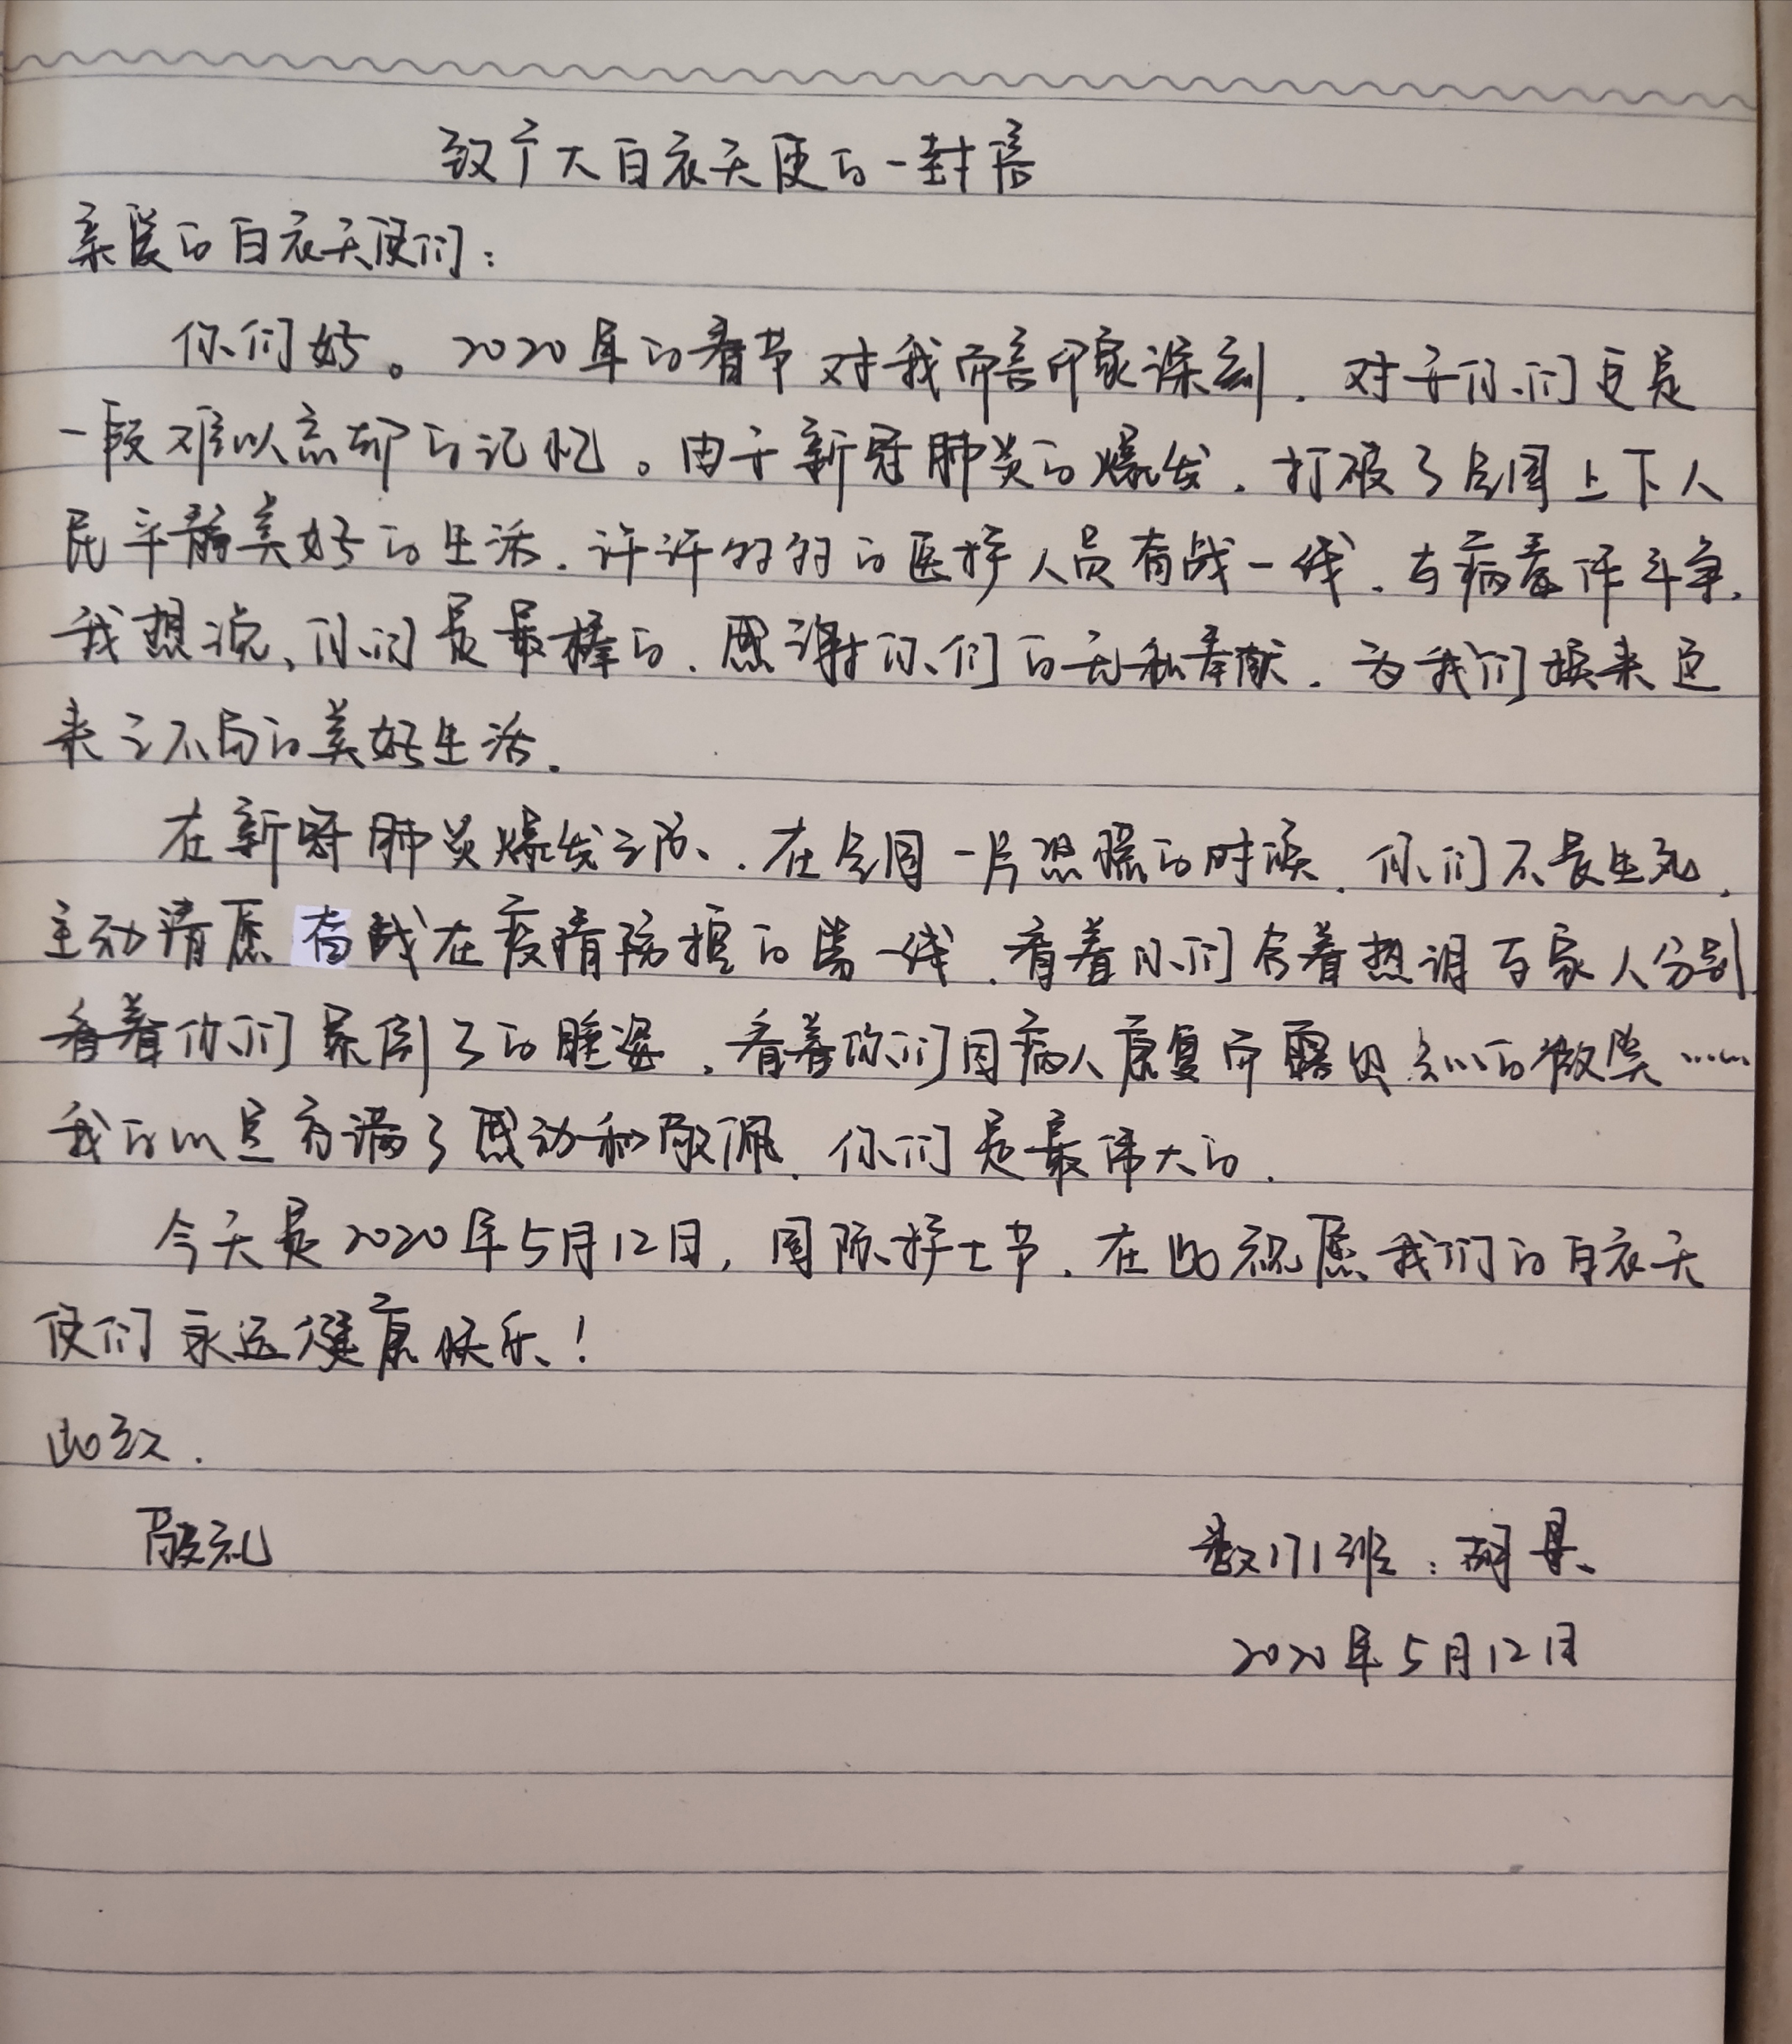 致广大白衣天使的一封信
亲爱的白衣天使们：
你们好。2020年的春节对我而言印象深刻，对于你们更是
一段难以忘却的记忆。由于新冠肺炎的爆发，打破了全国上下人
民平静美好的生活。许许多多的医护人员奋战一线，与病毒作斗争。
我想说，你们是最棒的，感谢你们的无私奉献，为我们换来这
来之不易的美好生活。
在新冠肺炎爆发之际，在全国一片恐慌的时候，你们不畏生死，
主动请愿奋战在疫情防控的第一线，看着你们含着热泪与家人分别
看着你们累倒了的睡姿，看着你们因病人康复而露出会心的微笑……
我的心里充满了感动和敬佩，你们是最伟大的。
今天是2020年5月12日，国际护士节，在此祝愿我们的白衣天
使们永远健康快乐！
此致.
敬礼
数171班：胡丹
2020年5月12日